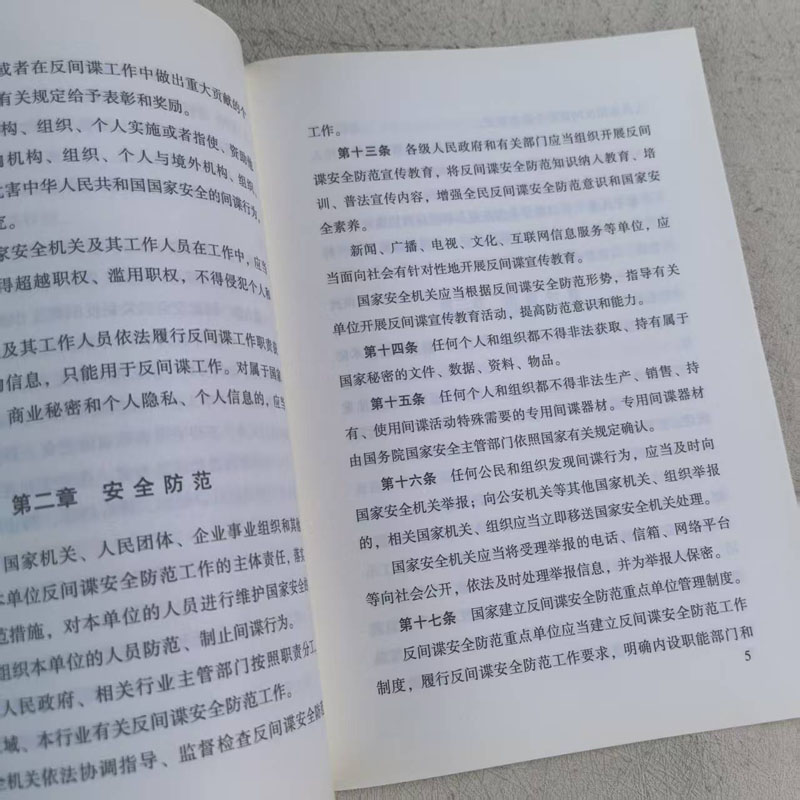 或者在反间谍工作中做出重大贡献的个
有关规定给予表彰和奖励。
构、组织、个人实施或者指使、资助
构、组织、个人与境外机构、组织、
害中华人民共和国国家安全的间谍行为,
究。
家安全机关及其工作人员在工作中,应当
得超越职权、滥用职权,不得侵犯个人和
及其工作人员依法履行反间谍工作职责获
的信息,只能用于反间谍工作。对属于国家
商业秘密和个人隐私、个人信息的,应当
第二章 安全防范
国家机关、人民团体、企业事业组织和其他
本单位反间谍安全防范工作的主体责任,落实
范措施,对本单位的人员进行维护国家安全
组织本单位的人员防范、制止间谍行为。
人民政府、相关行业主管部门按照职责分工
域、本行业有关反间谍安全防范工作。
全机关依法协调指导、监督检查反间谍安全防范
工作。
第十三条 各级人民政府和有关部门应当组织开展反间
谍安全防范宣传教育,将反间谍安全防范知识纳入教育、培
训、普法宣传内容,增强全民反间谍安全防范意识和国家安
全素养。
新闻、广播、电视、文化、互联网信息服务等单位,应
当面向社会有针对性地开展反间谍宣传教育。
国家安全机关应当根据反间谍安全防范形势,指导有关
单位开展反间谍宣传教育活动,提高防范意识和能力。
第十四条 任何个人和组织都不得非法获取、持有属于
国家秘密的文件、数据、资料、物品。
第十五条 任何个人和组织都不得非法生产、销售、持
有、使用间谍活动特殊需要的专用间谍器材。专用间谍器材
由国务院国家安全主管部门依照国家有关规定确认。
第十六条 任何公民和组织发现间谍行为,应当及时向
国家安全机关举报;向公安机关等其他国家机关、组织举报
的,相关国家机关、组织应当立即移送国家安全机关处理。
国家安全机关应当将受理举报的电话、信箱、网络平台
等向社会公开,依法及时处理举报信息,并为举报人保密。
第十七条 国家建立反间谍安全防范重点单位管理制度。
反间谍安全防范重点单位应当建立反间谍安全防范工作
制度,履行反间谍安全防范工作要求,明确内设职能部门和
5